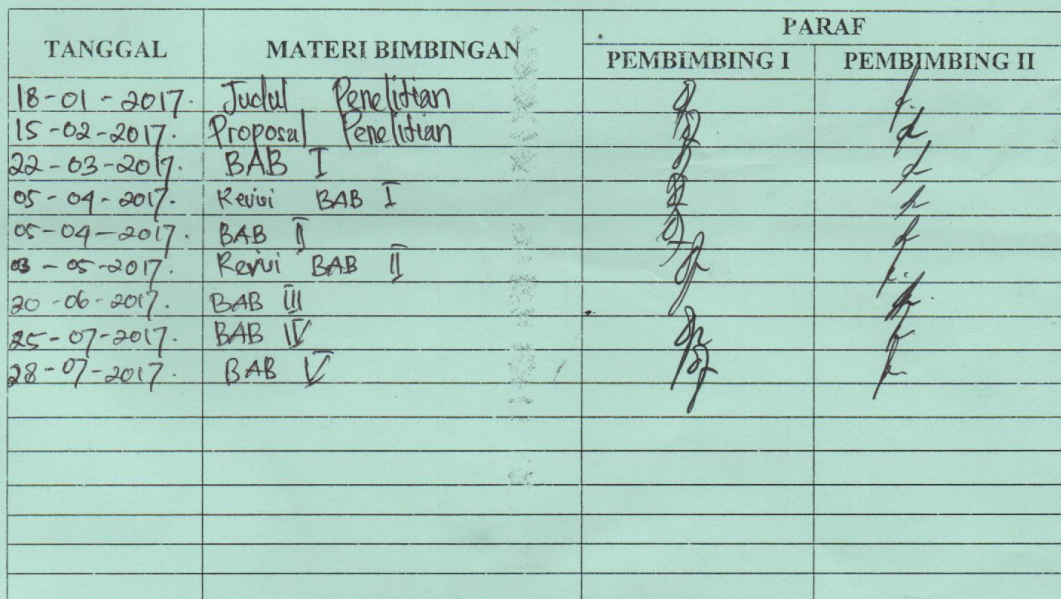 PARAF
TANGGAL MATERI BIMBINGAN PEMBIMBING I PEMBIMBING II
18-01-2017. Judul Penelitian
15-02-2017. Proposal Penelitian
22-03-2017. BAB I
05-04-2017. Revivi BAB I
05-04-2017. BAB II
03-05-2017. Revivi BAB II
20-06-2017. BAB III
25-07-2017. BAB IV
28-07-2017. BAB V